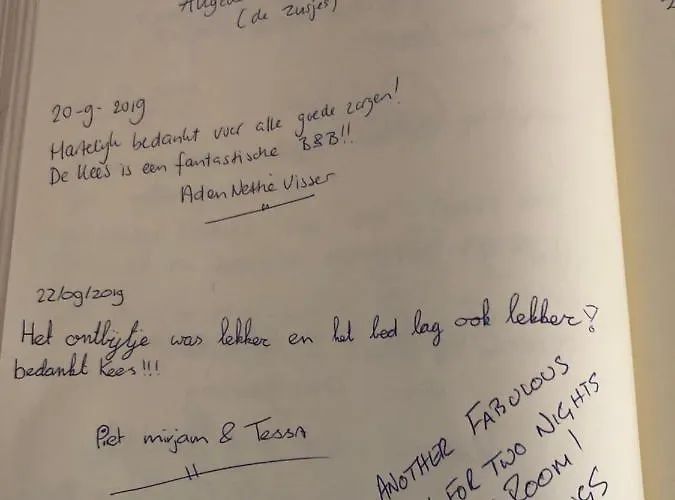 (de zusjes)
20-9-2019
Hartelijk bedankt voor alle goede zorgen!
De Kees is een fantastische B&B!!
Ad en Nettie Visser
22/09/2019
Het ontbijtje was lekker en het bed lag ook lekker!
bedankt Kees!!!
Piet mirjam & Tessa
ANOTHER FABULOUS
FOR TWO NIGHTS
ROOM!